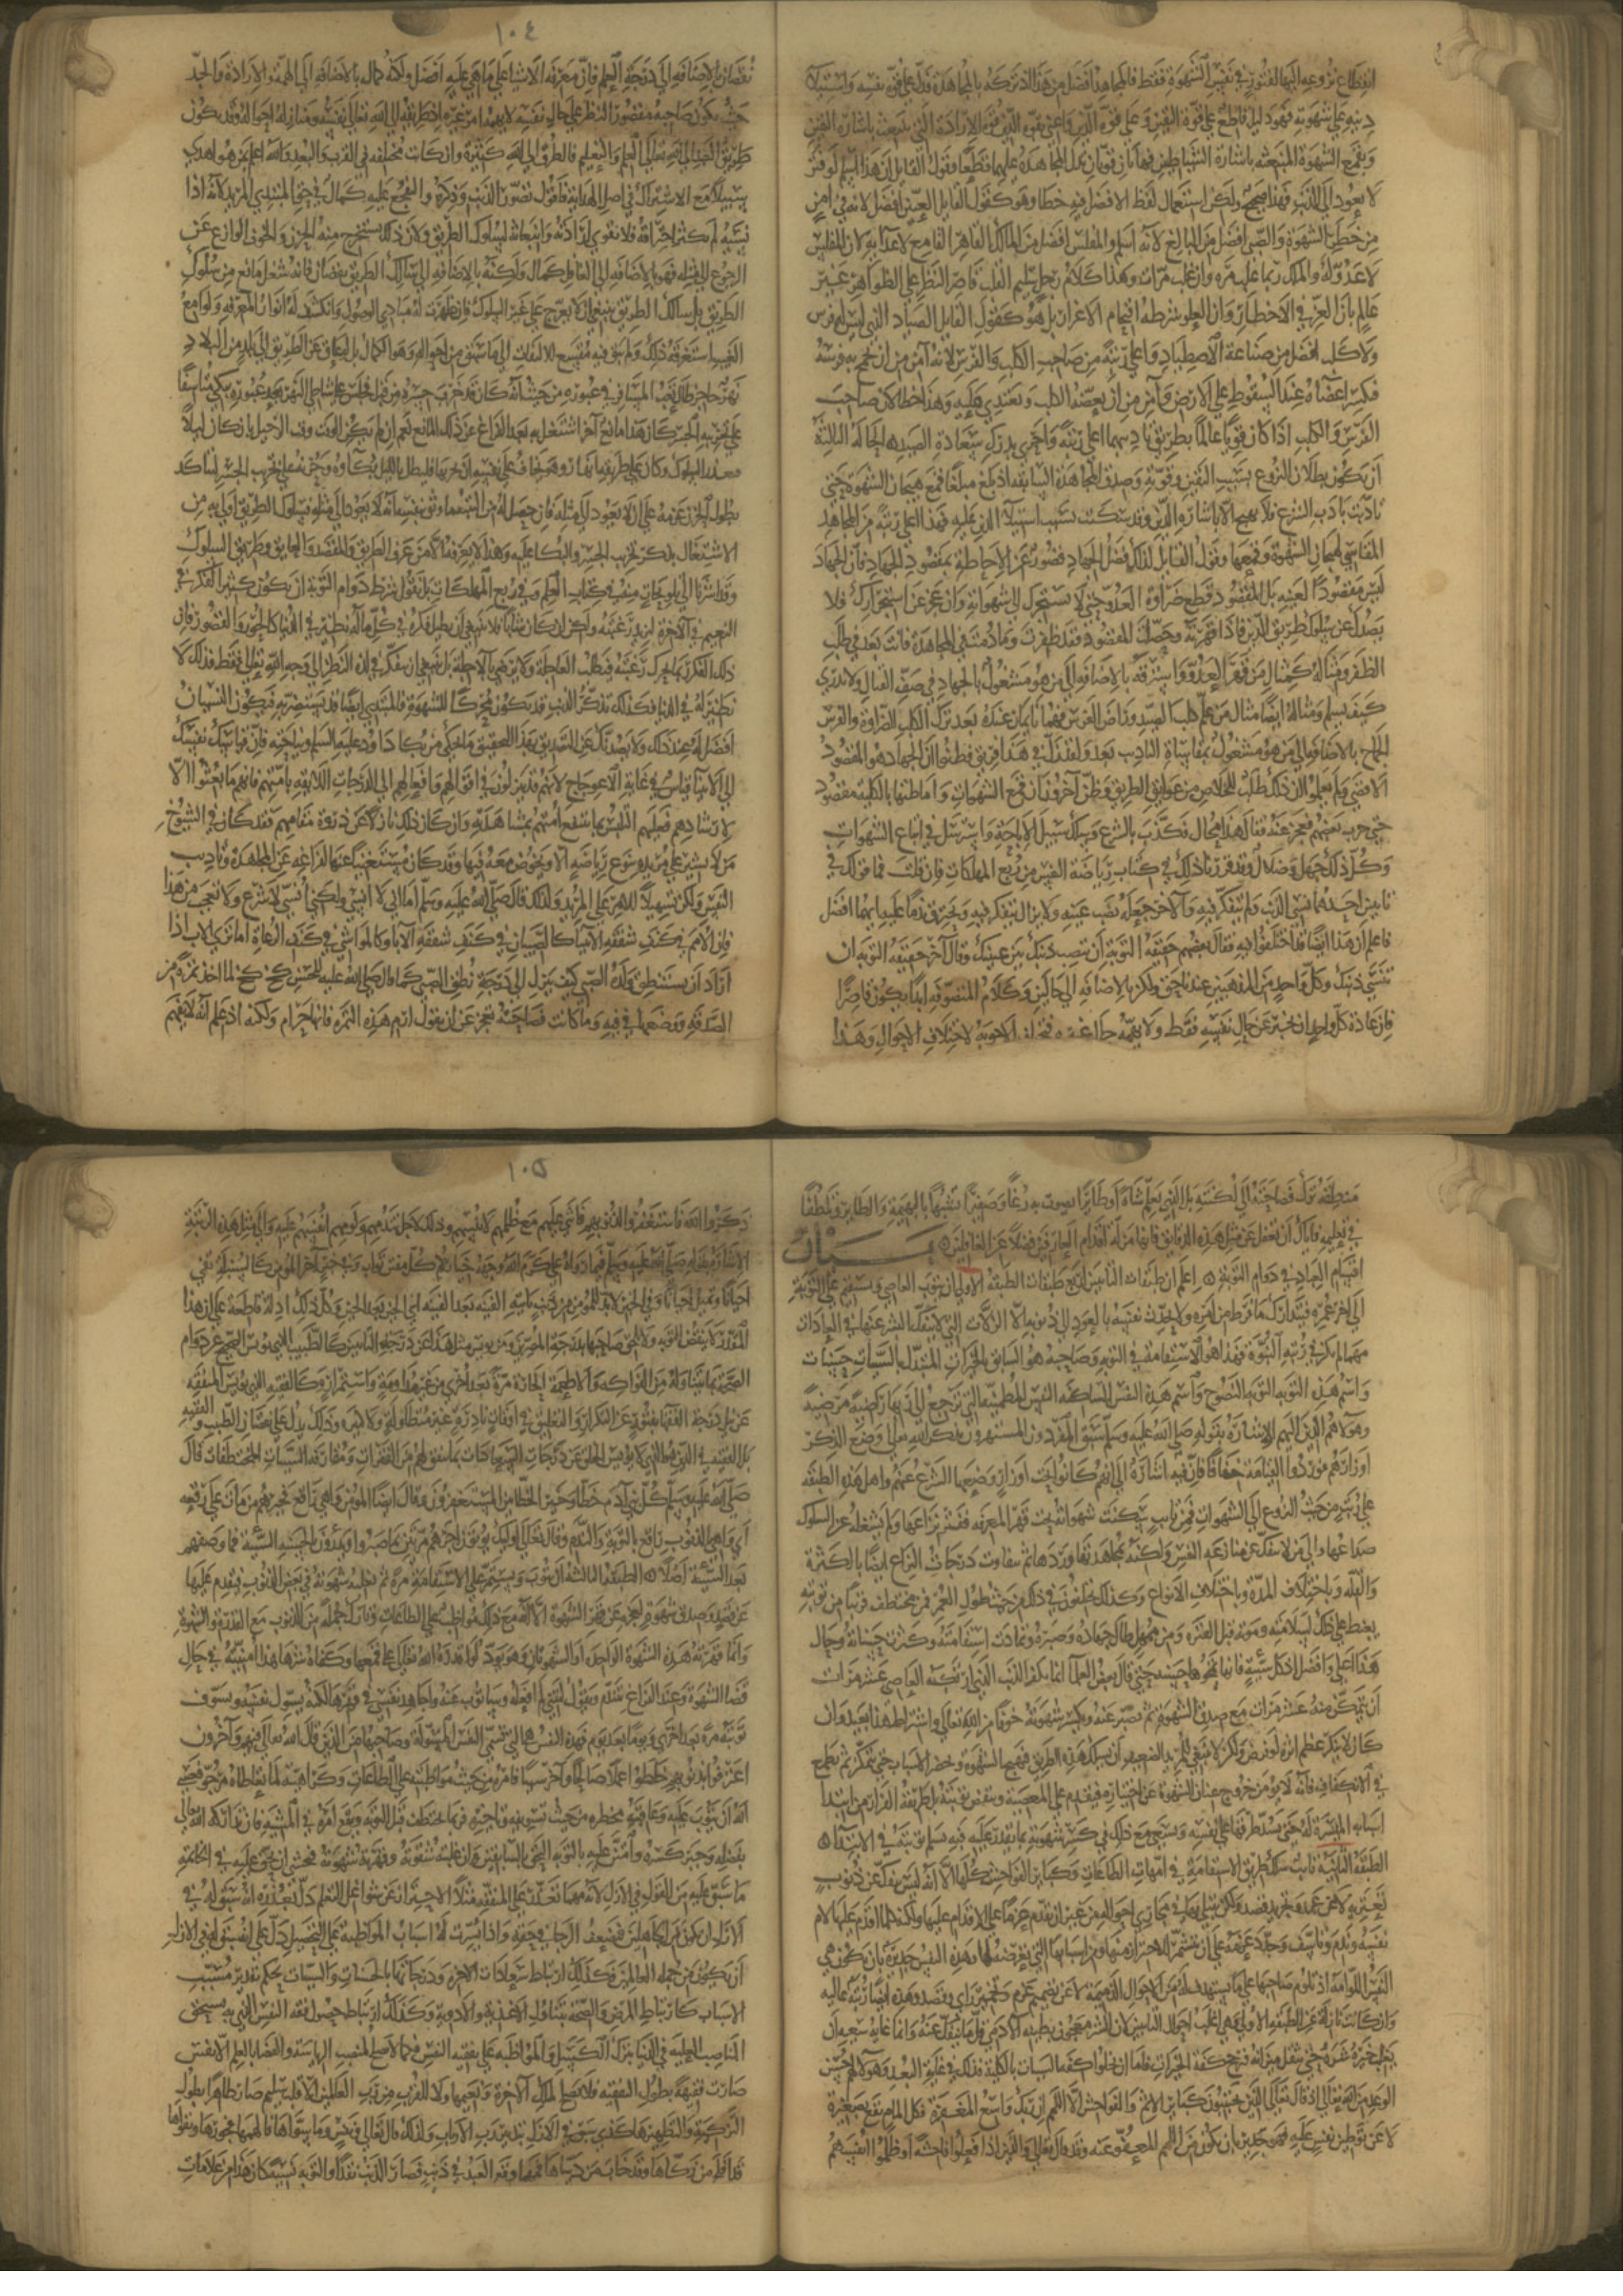 انقطاع نزوعه اليها لفتور في نفس الشهوة فقط فالمجاهد افضل من هذا اذ تركه بالمجاهدة قد دل على قوة نفسه واستيلا
دينه على شهوته فهو دليل قاطع على قوة اليقين وعلى قوة الدين واعني بقوة الدين قوة الارادة التي تنبعث باشارة اليقين
وتقمع الشهوة المنبعثة باشارة الشياطين فهاتان قوتان تدل المجاهدة عليهما قطعا فقول القايل ان هذا اسلم لو فتر
لا يعود الى الذنب فهذا صحيح ولكن استعمال لفظ الافضل فيه خطا وهو كقول القايل العنين افضل لانه في امن
من خطر الشهوة والصبي افضل من البالغ لانه اسلم والمفلس افضل من الملك القاهر القامع لاعدايه لان المفلس
لا عدو له والملك ربما يغلب مرة وان غلب مرات وهذا كلام رجل سليم القلب قاصر النظر على الظواهر غير
عالم بان العز في الاخطار وان العلو شرطه اقتحام الاغرار بل هو كقول القايل الصياد الذي ليس له فرس
ولا كلب افضل في صناعة الاصطياد واعلى رتبة من صاحب الكلب والفرس لانه آمن من ان يجمح به فرسه
فتكسر اعضاه عند السقوط على الارض وآمن من ان يعضه الكلب ويعتدي عليه وهذا خطا لان صاحب
الفرس والكلب اذا كان قويا عالما بطريق تاديبهما اعلى رتبة واحرى بدرك سعادة الصيد الحالة الثالثة
ان يكون بطلان النزوع بسبب اليقين وقوته وصدق المجاهدة السابقة اذ بلغ مبلغا قمع هيجان الشهوة حتى
تادبت بادب الشرع فلا تهيج الا باشارة الدين وقد سكنت بسبب استيلا الدين عليه فهذا اعلى رتبة من المجاهد
المقاسي لهيجان الشهوة وقمعها وقول القايل لذلك فضل الجهاد قصور عن الاحاطة بمقصود الجهاد فان الجهاد
ليس مقصودا لعينه بل المقصود قطع ضراوة العدو حتى لا يستجرك الى شهواته وان عجز عن استجرارك فلا
يصدك عن سلوك طريق الدين فاذا قهرته وحصلت المقصود فقد ظفرت وما دمت في المجاهدة فانت بعد في طلب
الظفر ومثاله كمثال من قهر العدو واسترقه بالاضافة الى من هو مشغول بالجهاد في صف القتال ولا ندري
كيف يسلم ومثاله ايضا مثال من علم كلب الصيد وراض الفرس فهما نايمان عنده بعد ترك الكلب الضراوة والفرس
الجماح بالاضافة الى من هو مشغول بمقاساة التاديب بعد ولقد زل في هذا فريق فظنوا ان الجهاد هو المقصود
الاقصى ولم يعلموا ان ذلك طلب للخلاص من عوايق الطريق وظن آخرون ان قمع الشهوات واماطتها بالكلية مقصود
حتى جرب بعضهم فعجز عنه فقال هذا محال فكذب بالشرع وسلك سبيل الاباحة واسترسل في اتباع الشهوات
وكل ذلك جهل وضلال وقد قررنا ذلك في كتاب رياضة النفس من ربع المهلكات فان قلت فما قولك في
تايبين احدهما نسي الذنب ولم يتفكر فيه والآخر جعله نصب عينيه ولا يزال يتفكر فيه ويحترق ندما عليه ايهما افضل
فاعلم ان هذا ايضا قد اختلفوا فيه فقال بعضهم حقيقة التوبة ان تنصب ذنبك بين عينيك وقال آخر حقيقة التوبة ان
تنسى ذنبك وكل واحد من المذهبين عندنا حق ولكن بالاضافة الى حالين وكلام المتصوفة ابدا يكون قاصرا
فان عادة كل واحد ان يخبر عن حال نفسه فقط ولا يهمه حال غيره فتختلف الاجوبة لاختلاف الاحوال وهذا
١٠٤
نقصان بالاضافة الى درجة العلم فان معرفة الاشيا على ما هي عليه افضل ولكنه كمال بالاضافة الى الهمة والارادة والجد
حيث يكون صاحبه مقصور النظر على حال نفسه لا يهمه امر غيره اذ طريقه الى الله تعالى نفسه ومنازله احواله وقد يكون
طريق العبد الى الله تعالى العلم والتعليم فالطرق الى الله كثيرة وان كانت مختلفة في القرب والبعد والله اعلم بمن هو اهدى
سبيلا مع الاشتراك في اصل الهداية فاقول تصور الذنب وذكره والتفجع عليه كمال في حق المبتدي المريد لانه اذا
نسيه لم يكثر احتراقه فلا تقوى ارادته وانبعاثه لسلوك الطريق ولان ذلك يستخرج منه الحزن والخوف الوازع عن
الرجوع الى مثله فهو بالاضافة الى الغافل كمال ولكنه بالاضافة الى سالك الطريق نقصان فانه شغل مانع من سلوك
الطريق بل سالك الطريق ينبغي ان لا يعرج على غير السلوك فان ظهرت له مبادي الوصول وانكشف له انوار المعرفة ولوامع
الغيب استغرقه ذلك ولم يبق فيه متسع للالتفات الى ما سبق من احواله وهو الكمال بل لو عاق عن الطريق الى بلد من البلاد
نهر حاجز طال تعب المسافر في عبوره من حيث انه كان قد خرب جسره من قبل فجلس على شاطى النهر بعد عبوره يبكي متاسفا
على تخريبه الجسر كان هذا مانعا آخر اشتغل به بعد الفراغ عن ذلك المانع نعم ان لم يكن الوقت وقت الرحيل بان كان ليلا
فتعذر السلوك وكان على طريقه انهار وهو يخاف على نفسه ان يمر بها فليطل بالليل بكاوه وحزنه على تخريب الجسر ليتاكد
بطول الحزن عزمه على ان لا يعود الى مثله فان حصل له من التنبيه ما وثق بنفسه انه لا يعود الى مثله فسلوك الطريق اولى به من
الاشتغال بذكر تخريب الجسر والبكا عليه وهذا لا يعرفه الا من عرف الطريق والمقصد والعايق وطريق السلوك
وقد اشرنا الى تلويحات منه في كتاب العلم وفي ربع المهلكات بل نقول شرط دوام التوبة ان يكون كثير الفكر في
النعيم في الآخرة لتزيد رغبته ولكن ان كان شابا فلا ينبغي ان يطيل فكره في كل ما له نظير في الدنيا كالحور والقصور فان
ذلك الفكر ربما يحرك رغبته فيطلب العاجلة ولا يرضى بالآجلة بل ينبغي ان يتفكر في لذة النظر الى وجه الله تعالى فقط فذلك لا
نظير له في الدنيا فكذلك تذكر الذنب قد يكون محركا للشهوة فالمبتدي ايضا قد يستضر به فيكون النسيان
افضل له عند ذلك ولا يصدنك عن التصديق بهذا التحقيق ما يحكى من بكا داود عليه السلم ونياحته فان قياسك نفسك
الى الانبيا قياس في غاية الاعوجاج لانهم قد ينزلون في اقوالهم وافعالهم الى الدرجات اللايقة باممهم فانهم ما بعثوا الا
لارشادهم فعليهم التلبس بما ينتفع اممهم بمشاهدته وان كان ذلك نازلا عن ذروة مقامهم فقد كان في الشيوخ
من لا يشير على مريد بنوع رياضة الا ويخوض معه فيها وقد كان مستغنيا عنها لفراغه عن المجاهدة وتاديب
النفس ولكن تسهيلا للامر على المريد ولذلك قال صلى الله عليه وسلم اما اني لا انسى ولكني انسى لاشرع ولا تعجب من هذا
فان الامم في كنف شفقة الانبيا كالصبيان في كنف شفقة الآبا وكالمواشي في كنف الرعاة اما ترى الاب اذا
اراد ان يستنطق ولده الصبي كيف ينزل الى درجة نطق الصبي كما قال صلى الله عليه للحسن كخ كخ لما اخذ تمرة من
الصدقة ووضعها في فيه وما كانت فصاحته تعجز عن ان يقول ارم هذه التمرة فانها حرام ولكنه اذ علم انه لا يفهم
منطقه ترك فصاحته الى لكنته بل الذي يعلم شاة او طايرا يصوت به رغا وصفيرا تشبها بالبهيمة والطاير وتلطفا
في تعليمه فاياك ان تغفل عن مثل هذه الدقايق فانها مزلة اقدام العارفين فضلا عن الغافلين بيان
اقسام العباد في دوام التوبة اعلم ان طبقات التايبين اربع طبقات الطبقة الاولى ان يتوب العاصي ويستقيم على التوبة
الى آخر عمره فيتدارك ما فرط من امره ولا يحدث نفسه بالعود الى ذنوبه الا الزلات التي لا ينفك البشر عنها في العادات
مهما لم يكن في رتبة النبوة فهذا هو الاستقامة في التوبة وصاحبه هو السابق بالخيرات المتبدل بالسيات حسنات
واسم هذه التوبة التوبة النصوح واسم هذه النفس الساكنة النفس المطمئنة التي ترجع الى ربها راضية مرضية
وهولا هم الذين اليهم الاشارة بقوله صلى الله عليه وسلم سبق المفردون المستهترون بذكر الله تعالى وضع الذكر
اوزارهم فوردوا القيامة خفافا فان فيه اشارة الى انهم كانوا تحت اوزار وضعها الشرع عنهم واهل هذه الطبقة
على رتب من حيث النزوع الى الشهوات فمن تايب سكنت شهواته تحت قهر المعرفة ففتر نزاعها ولم يشغله عن السلوك
صراعها والى من لا ينفك عن منازعة النفس ولكنه يجاهدها وردها ثم تتفاوت درجات النزاع ايضا بالكثرة
والقلة وباختلاف المدة وباختلاف الانواع وكذلك يختلفون في ذلك من حيث طول العمر فمن مختطف قريبا من توبته
يغبط على ذلك لسلامته وموته قبل الفترة ومن ممهل طال جهاده وصبره وتمادت استقامته وكثرت حسناته وحال
هذا اعلى وافضل اذ كل سيئة فانما تمحوها حسنة حتى قال بعض العلما انما يكفر الذنب الذي ارتكبه العاصي عشر مرات
ان يتمكن منه عشر مرات مع صدق الشهوة ثم يصبر عنه ويكسر شهوته خوفا من الله تعالى واشتراط هذا بعيد وان
كان لا ينكر عظم اثره لو فرض ولكن لا ينبغي للمريد الضعيف ان يسلك هذه الطريق فتهيج الشهوة وتحضر الاسباب حتى يتمكن ثم يطمع
في الانكفاف فانه لا يومن خروج عنان الشهوة عن اختياره فيقدم على المعصية وينقض توبته بل طريقه الفرار من ابتدا
اسبابه الميسرة له حتى يسد طرقها على نفسه ويسعى مع ذلك في كسر شهوته بما يقدر عليه فبه تسلم توبته في الابتدا
الطبقة الثانية تايب سلك طريق الاستقامة في امهات الطاعات وكباير الفواحش كلها الا انه ليس ينفك عن ذنوب
تعتريه لا عن عمد وتجريد قصد ولكن يبتلى بها في مجاري احواله من غير ان يقدم عزما على الاقدام عليها ولكنه كلما اقدم عليها لام
نفسه وندم وتاسف وجدد عزمه على ان يتشمر للاحتراز منها ومن اسبابها التي تعرضه لها وهذه النفس جديرة بان تكون هي
النفس اللوامة اذ تلوم صاحبها على ما يستهدف له من الاحوال الذميمة لا عن تصميم عزم وتخمين راي وقصد وهذه ايضا رتبة عالية
وان كانت نازلة عن الطبقة الاولى وهي اغلب احوال التايبين لان الشر معجون بطينة الآدمي قل ما ينفك عنه وانما غاية سعيه ان
يغلب خيره شره حتى يثقل ميزانه فترجح كفة الخيرات فاما ان تخلوا كفة السيات بالكلية فذلك في غاية البعد وهولا لهم حسن
الوعد من الله تعالى اذ قال تعالى الذين يجتنبون كباير الاثم والفواحش الا اللمم ان ربك واسع المغفرة فكل المام يقع بصغيرة
لا عن توطين نفس عليه فهو جدير بان يكون من اللمم المعفو عنه وقد قال تعالى والذين اذا فعلوا فاحشة او ظلموا انفسهم
١٠٥
ذكروا الله فاستغفروا لذنوبهم فاثنى عليهم مع ظلمهم لانفسهم وذلك لاجل تندمهم ولومهم انفسهم عليه والى مثل هذه الرتبة
الاشارة بقوله صلى الله عليه وسلم فيما رواه على كرم الله وجهه خياركم كل مفتن تواب وفي خبر آخر المومن كالسنبلة تفي
احيانا وتميل احيانا وفي الخبر لا بد للمومن من ذنب ياتيه الفينة بعد الفينة اي الحين بعد الحين وكل ذلك ادلة قاطعة على ان هذا
القدر لا ينقض التوبة ولا يلحق صاحبها بدرجة المصرين ومن يويس مثل هذا عن درجة التايبين كالطبيب الذي يويس الصحيح عن دوام
الصحة بما يتناوله من الفواكه والاطعمة الحارة مرة بعد اخرى من غير مداومة واستمرار وكالفقيه الذي يويس المتفقه
عن نيل درجة الفقها بفتوره عن التكرار والتعليق في اوقات نادرة غير متطاولة ولا كثيرة وذلك يدل على نقصان الطبيب والفقيه
بل الفقيه في الدين هو الذي لا يويس الخلق عن درجات السعادات بما يتفق لهم من الفترات ومقارفة السيات المختطفات قال
صلى الله عليه وسلم كل بني آدم خطاؤن وخير الخطائين المستغفرون وقال ايضا المومن واه راقع فخيرهم من مات على رقعه
اي واه بالذنوب راقع بالتوبة والندم وقال تعالى اوليك يوتون اجرهم مرتين بما صبروا ويدرؤن بالحسنة السيئة فما وصفهم
بعدم السيئة اصلا الطبقة الثالثة ان يتوب ويستمر على الاستقامة مدة ثم تغلبه شهوته في بعض الذنوب فيقدم عليها
عن قصد وصدق شهوة لعجزه عن قهر الشهوة الا انه مع ذلك مواظب على الطاعات وتارك جملة من الذنوب مع القدرة والشهوة
وانما قهرته هذه الشهوة الواحدة او الشهوتان وهو يود لو اقدره الله تعالى على قمعها وكفاه شرها هذا امنيته في حال
قضا الشهوة وعند الفراغ يتندم ويقول ليتني لم افعله وساتوب عنه واجاهد نفسي في قهرها لكنه تسول نفسه ويسوف
توبته مرة بعد اخرى ويوما بعد يوم فهذه النفس هي التي تسمى النفس المسولة وصاحبها من الذين قال الله تعالى فيهم وآخرون
اعترفوا بذنوبهم خلطوا عملا صالحا وآخر سيئا فامره من حيث مواظبته على الطاعات وكراهيته لما تعاطاه مرجو فعسى
الله ان يتوب عليه وعاقبته مخطرة من حيث تسويفه وتاخيره فربما يختطف قبل التوبة ويقع امره في المشيئة فان تداركه الله تعالى
بفضله وجبر كسره وامتن عليه بالتوبة التحق بالسابقين وان غلبته شقوته وقهرته شهوته فيخشى ان يحق عليه في الخاتمة
ما سبق عليه من القول في الازل لانه مهما تعذر على المتفقه مثلا الاحتراز عن شواغل التعلم دل تعذره انه سبق له في
الازل ان يكون من الجاهلين فضعف الرجا في حقه واذا يسرت له اسباب المواظبة على التحصيل دل على انه سبق له في الازل
ان يكون من جملة العالمين فكذلك ارتباط سعادات الاخرة ودرجاتها بالحسنات والسيات بحكم تقدير مسبب
الاسباب كارتباط المرض والصحة بتناول الاغذية والادوية وكذلك ارتباط حصول فقه النفس الذي به يستحق
المناصب العلية في الدنيا بترك الكسل والمواظبة على تفقيه النفس فكما لا يصلح لمنصب الرياسة والقضا بالعلم الا نفس
صارت فقيهة بطول التفقيه فلا يصلح لملك الآخرة ونعيمها ولا للقرب من رب العالمين الا قلب سليم صار طاهرا بطول
التزكية والتطهير هكذي سبق في الازل بتدبير رب الارباب ولذلك قال تعالى ونفس وما سواها فالهمها فجورها وتقواها
قد افلح من زكاها وقد خاب من دساها فمهما وقع العبد في ذنب فصار الذنب نقدا والتوبة نسيئة كان هذا من علامات